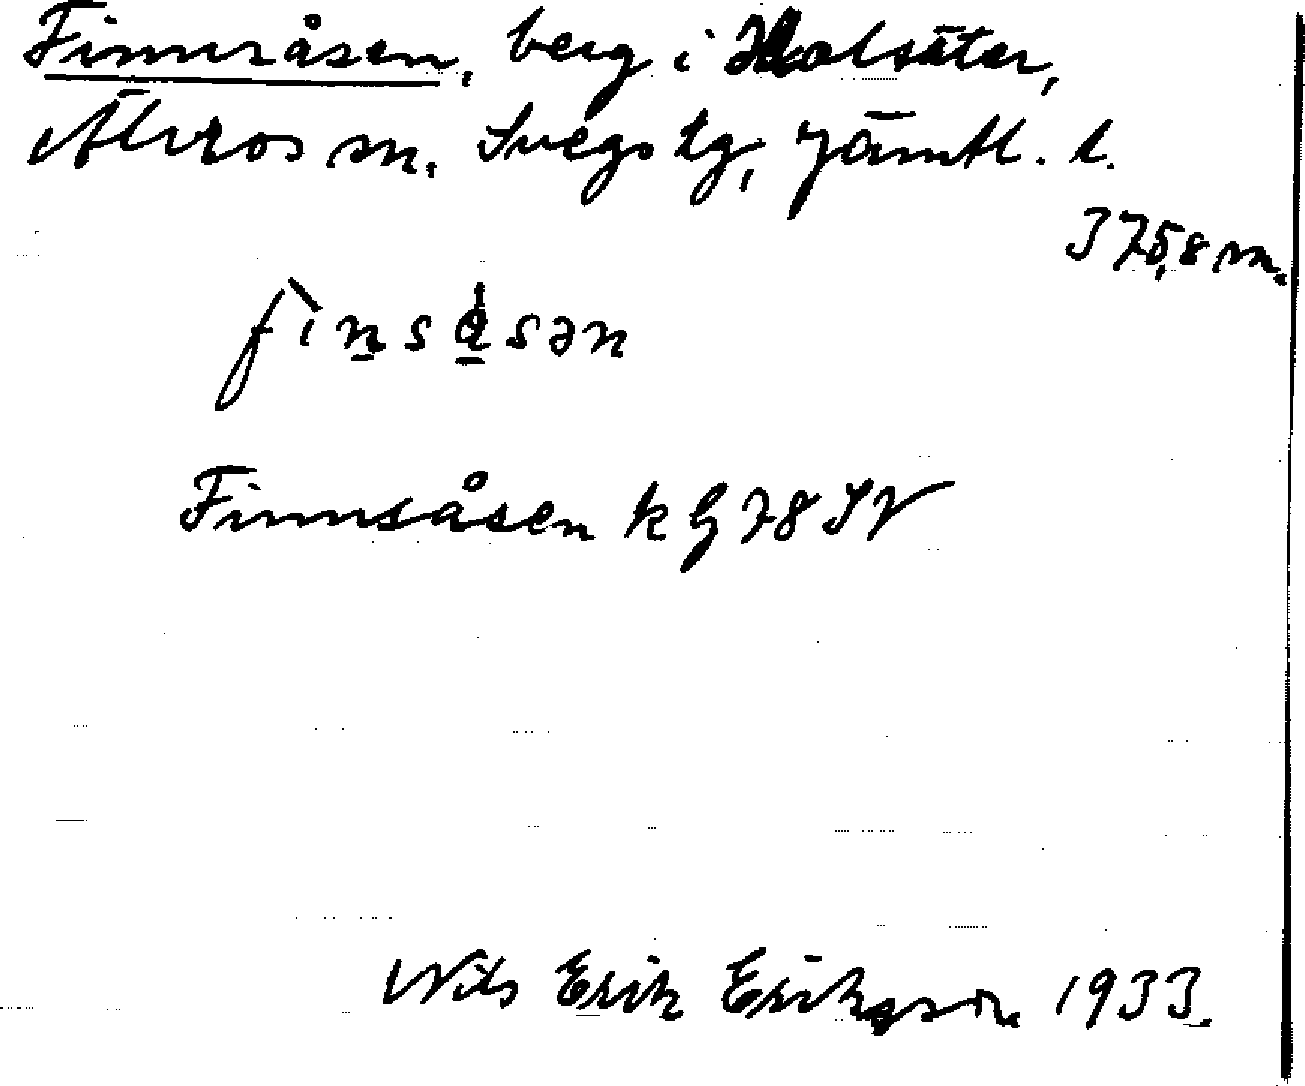 Finnsåsen, berg i Kolsäter,
Älvros sn. Svegs tg, Jämtl. l.
375,8 m.
fìnsåsən
Finnsåsen k G 78 SV
Nils Erik Eriksson 1933.